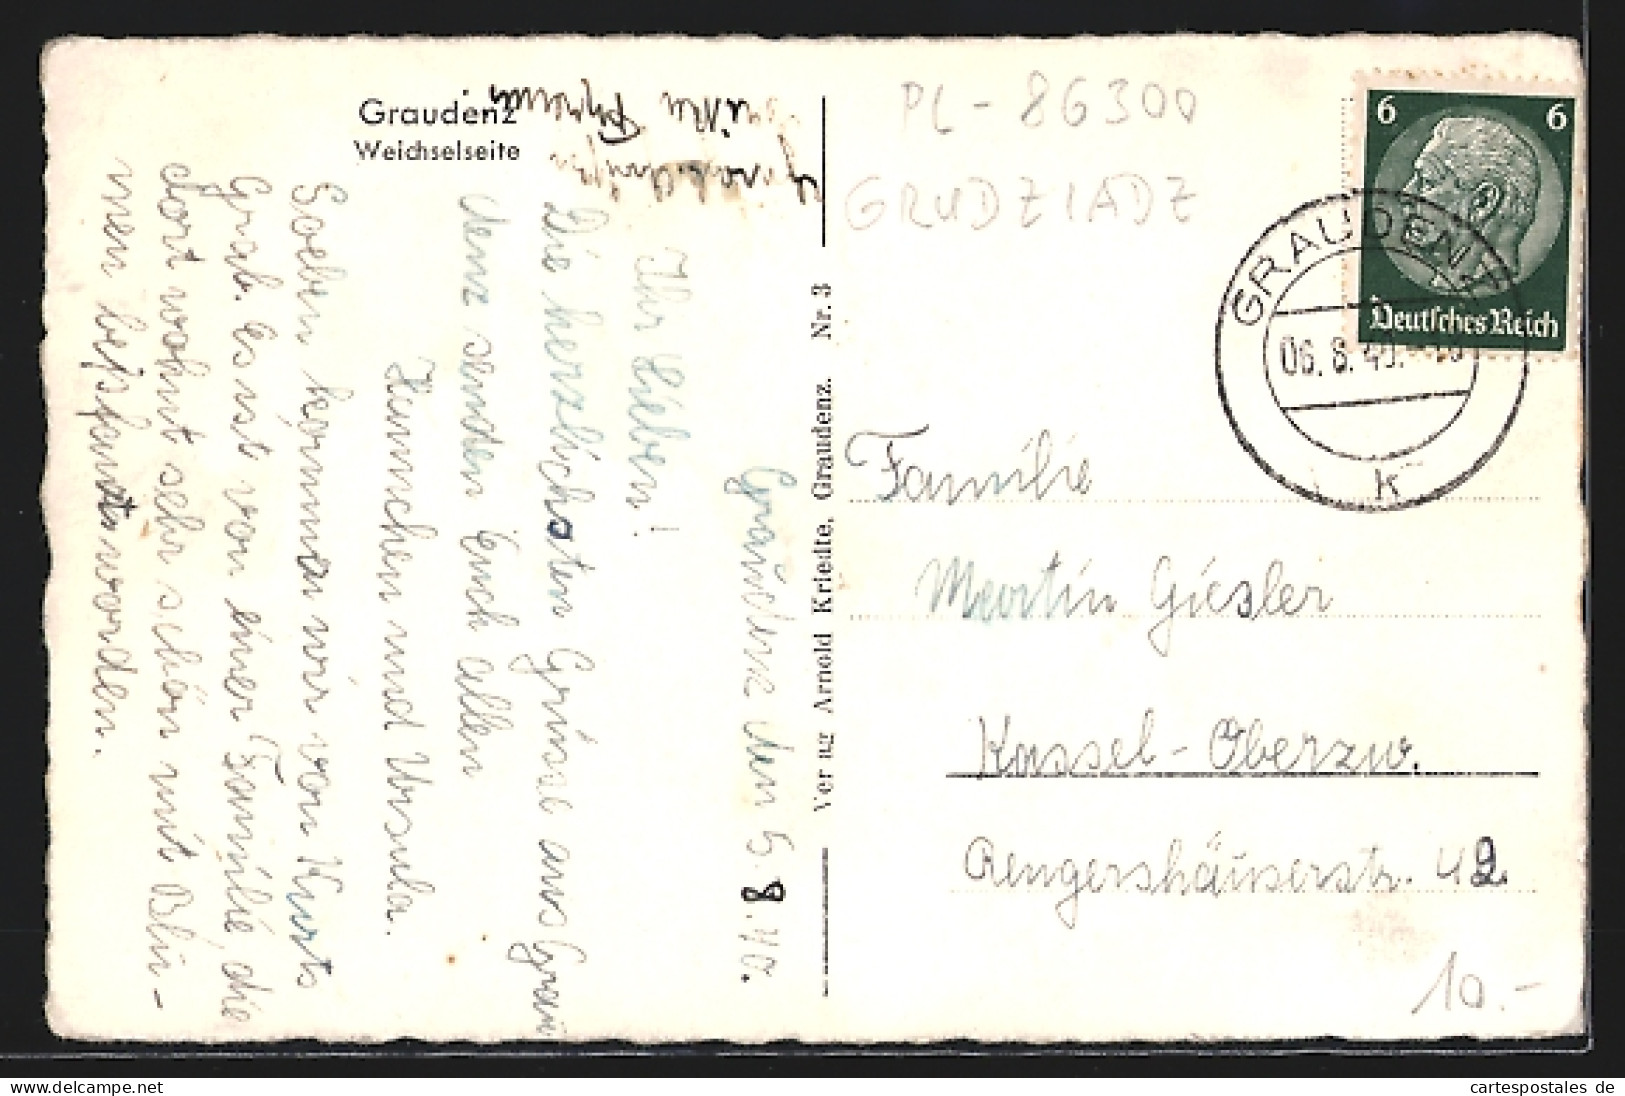 Graudenz
Weichselseite
PL-86300
GRUDZIADZ
6 6
Deutsches Reich
GRAUDENZ
06.8.40.
k
Verlag Arnold Kriedte, Graudenz. Nr. 3
Graudenz den 5.8.40.
Ihr Lieben!
Die herzlichsten Grüsse aus Grau
denz senden Euch allen
Hännschen und Ursula.
Soeben kommen wir von Kurts
Grab. Es ist von einer Familie die
dort wohnt sehr schön mit Blu-
men bepflanzt worden.
Familie
Martin Giesler
Kassel-Oberzw.
Rengershäuserstr. 42
10.-
cartespostales de